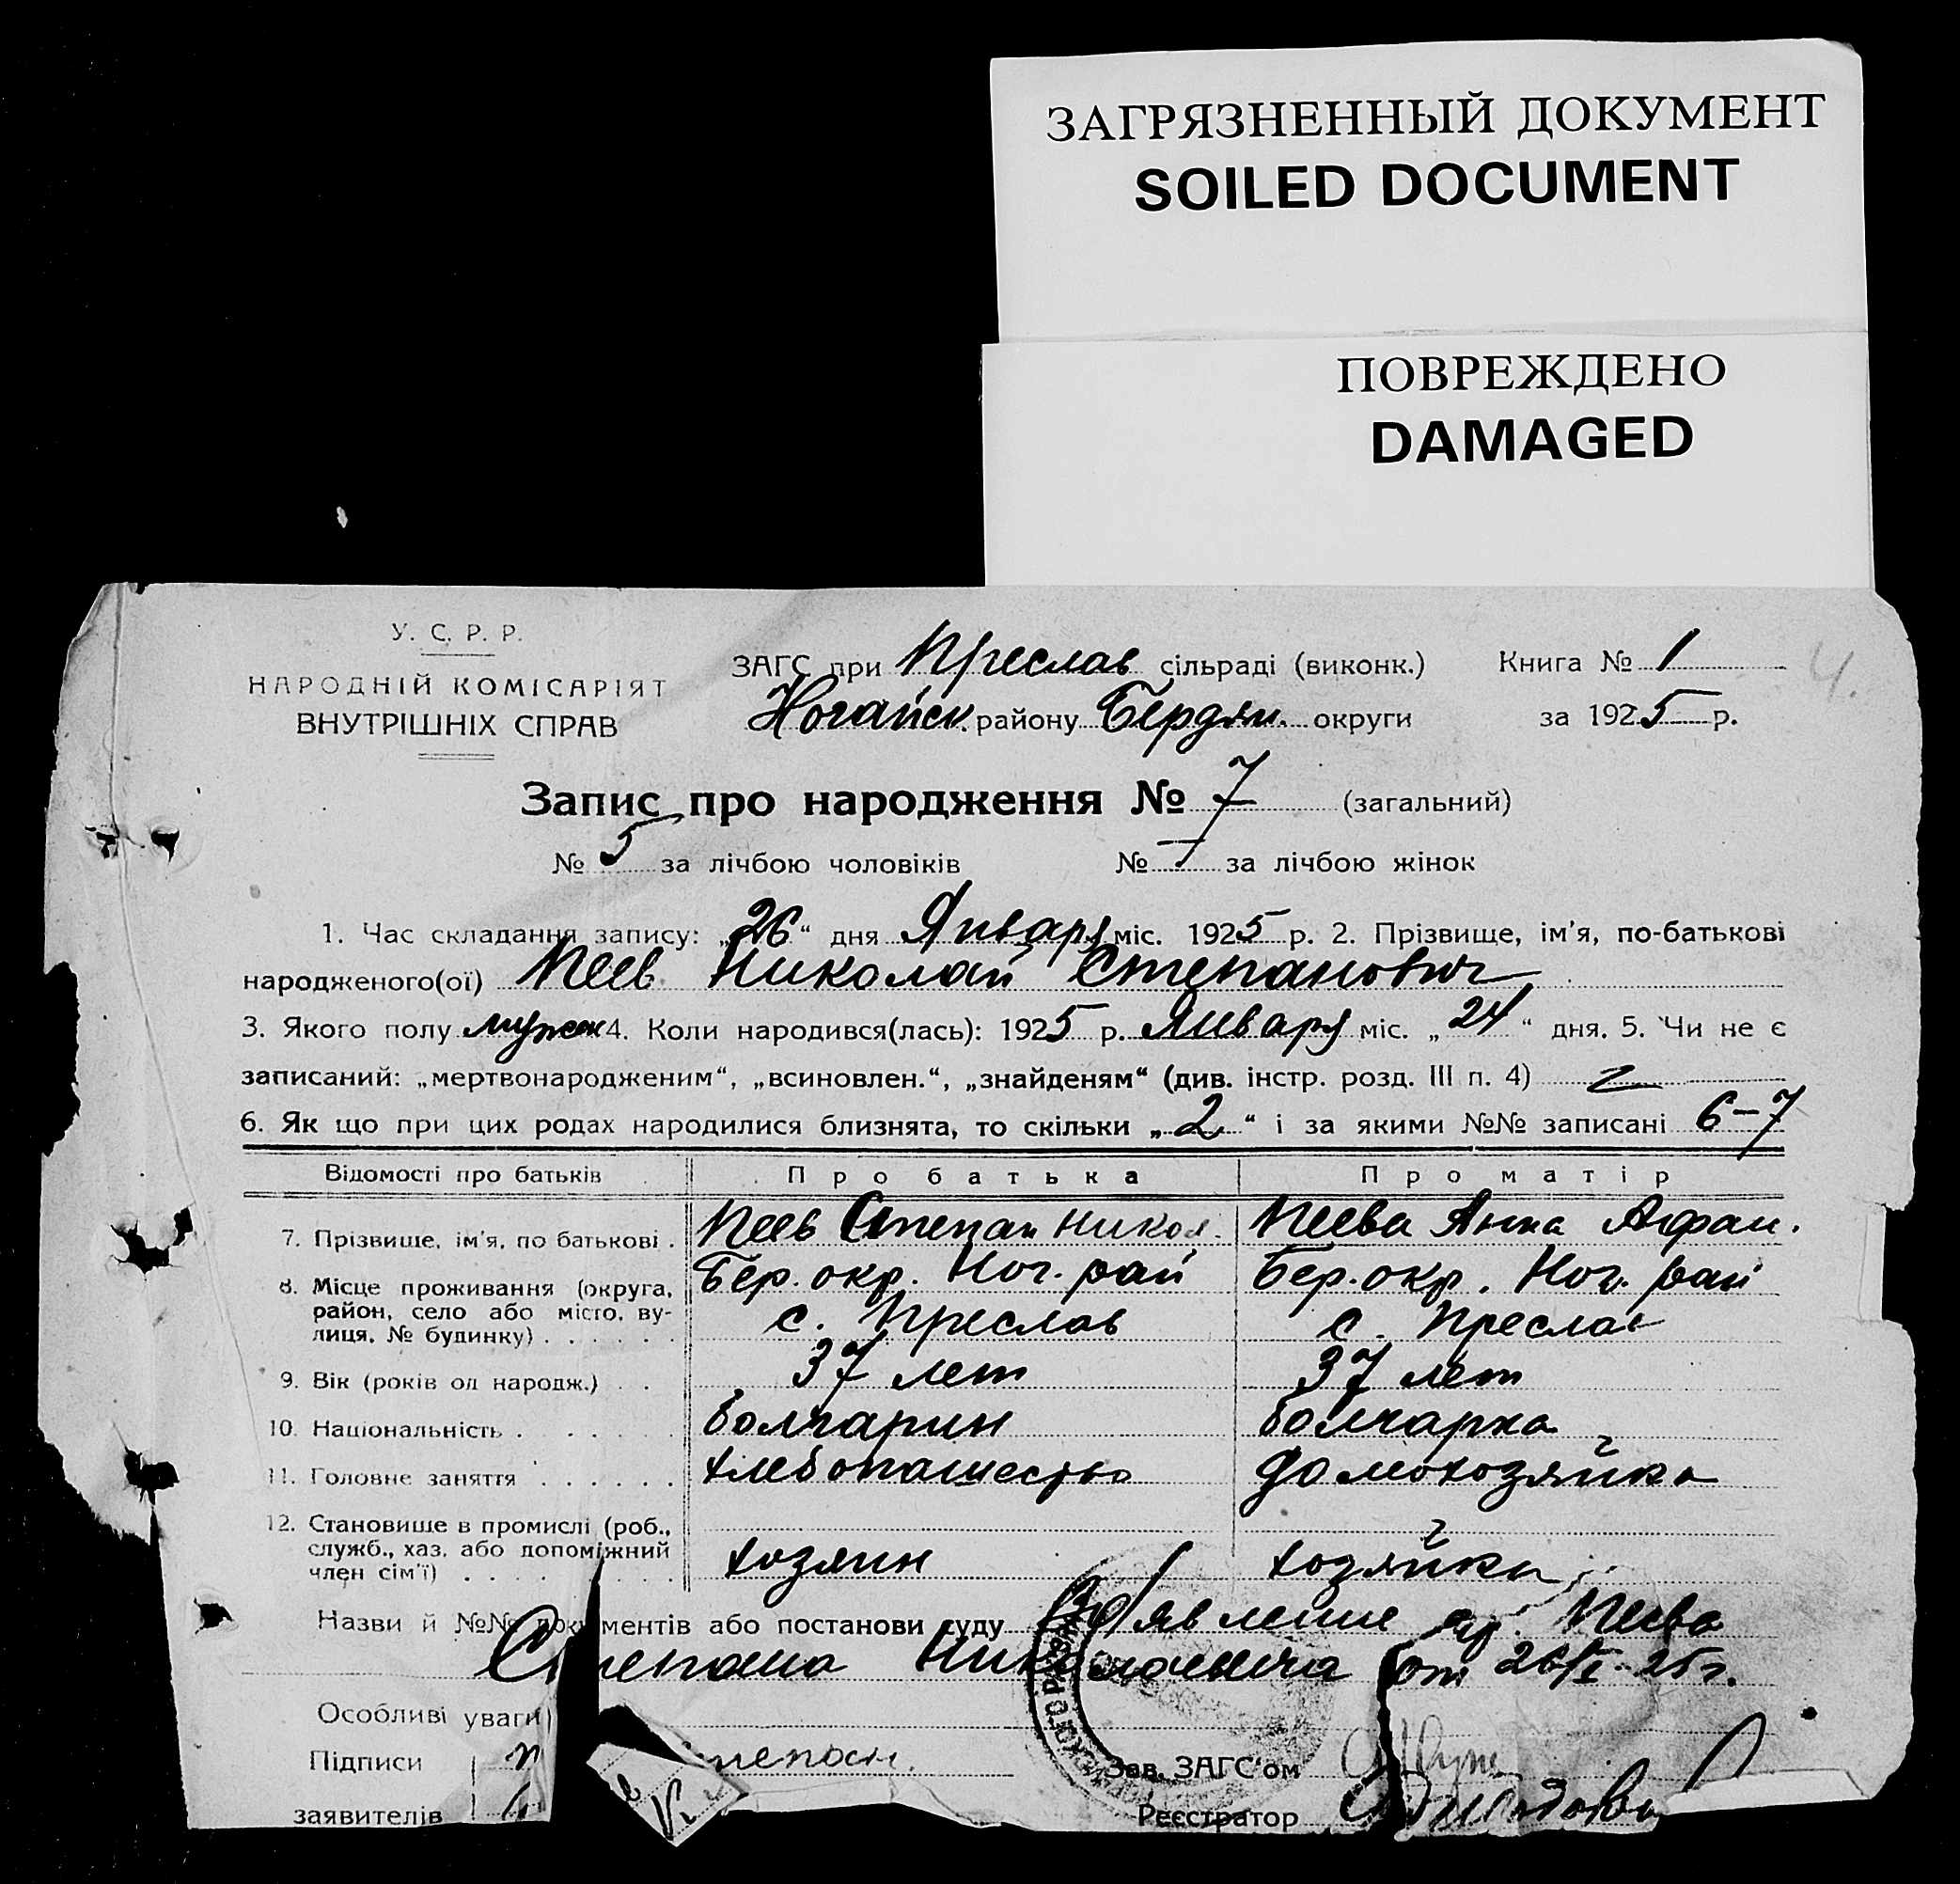 ЗАГРЯЗНЕННЫЙ ДОКУМЕНТ
SOILED DOCUMENT
ПОВРЕЖДЕНО
DAMAGED
У. С. Р. Р.
НАРОДНІЙ КОМІСАРІЯТ
ВНУТРІШНІХ СПРАВ
ЗАГС при Преслав сільраді (виконк.)
Книга № 1
4.
Ногайск. району Бердян. округи
за 1925 р.
Запис про народження № 7 (загальний)
№ 5 за лічбою чоловіків № за лічбою жінок
1. Час складання запису: „26“ дня Января міс. 1925 р. 2. Прізвище, ім'я, по-батькові
народженого(ої) Пеев Николай Степанович
3. Якого полу мужск 4. Коли народився(лась): 1925 р. Января міс. „24“ дня. 5. Чи не є
записаний: „мертвонародженим“, „всиновлен.“, „знайденям“ (див. інстр. розд. III п. 4)
6. Як що при цих родах народилися близнята, то скільки „2“ і за якими №№ записані 6–7
Відомості про батьків Про батька Про матір
7. Прізвише, ім'я, по батькові . Пеев Степан Никол. Пеева Анна Афан.
8. Місце проживання (округа, район, село або місто, ву-лиця, № будинку) . . . . . . Бер. окр. Ног. рай Бер. окр. Ног. рай
с. Преслав с. Преслав
9. Вік (років од народж.) . . 37 лет 37 лет
10. Національність . . . . . . болгарин болгарка
11. Головне заняття . . . . . . хлебопашество домохозяйка
12. Становише в промислі (роб.,
служб., хаз. або допоміжний
член сім'ї) . . . . . . хозяин хозяйка
Назви й №№ документів або постанови суду Объявление гр. Пеева
Степана Николаевича от 26/I-25г.
Особливі уваги
Підписи Степан. Зав. ЗАГС'ом
заявителів Реєстратор